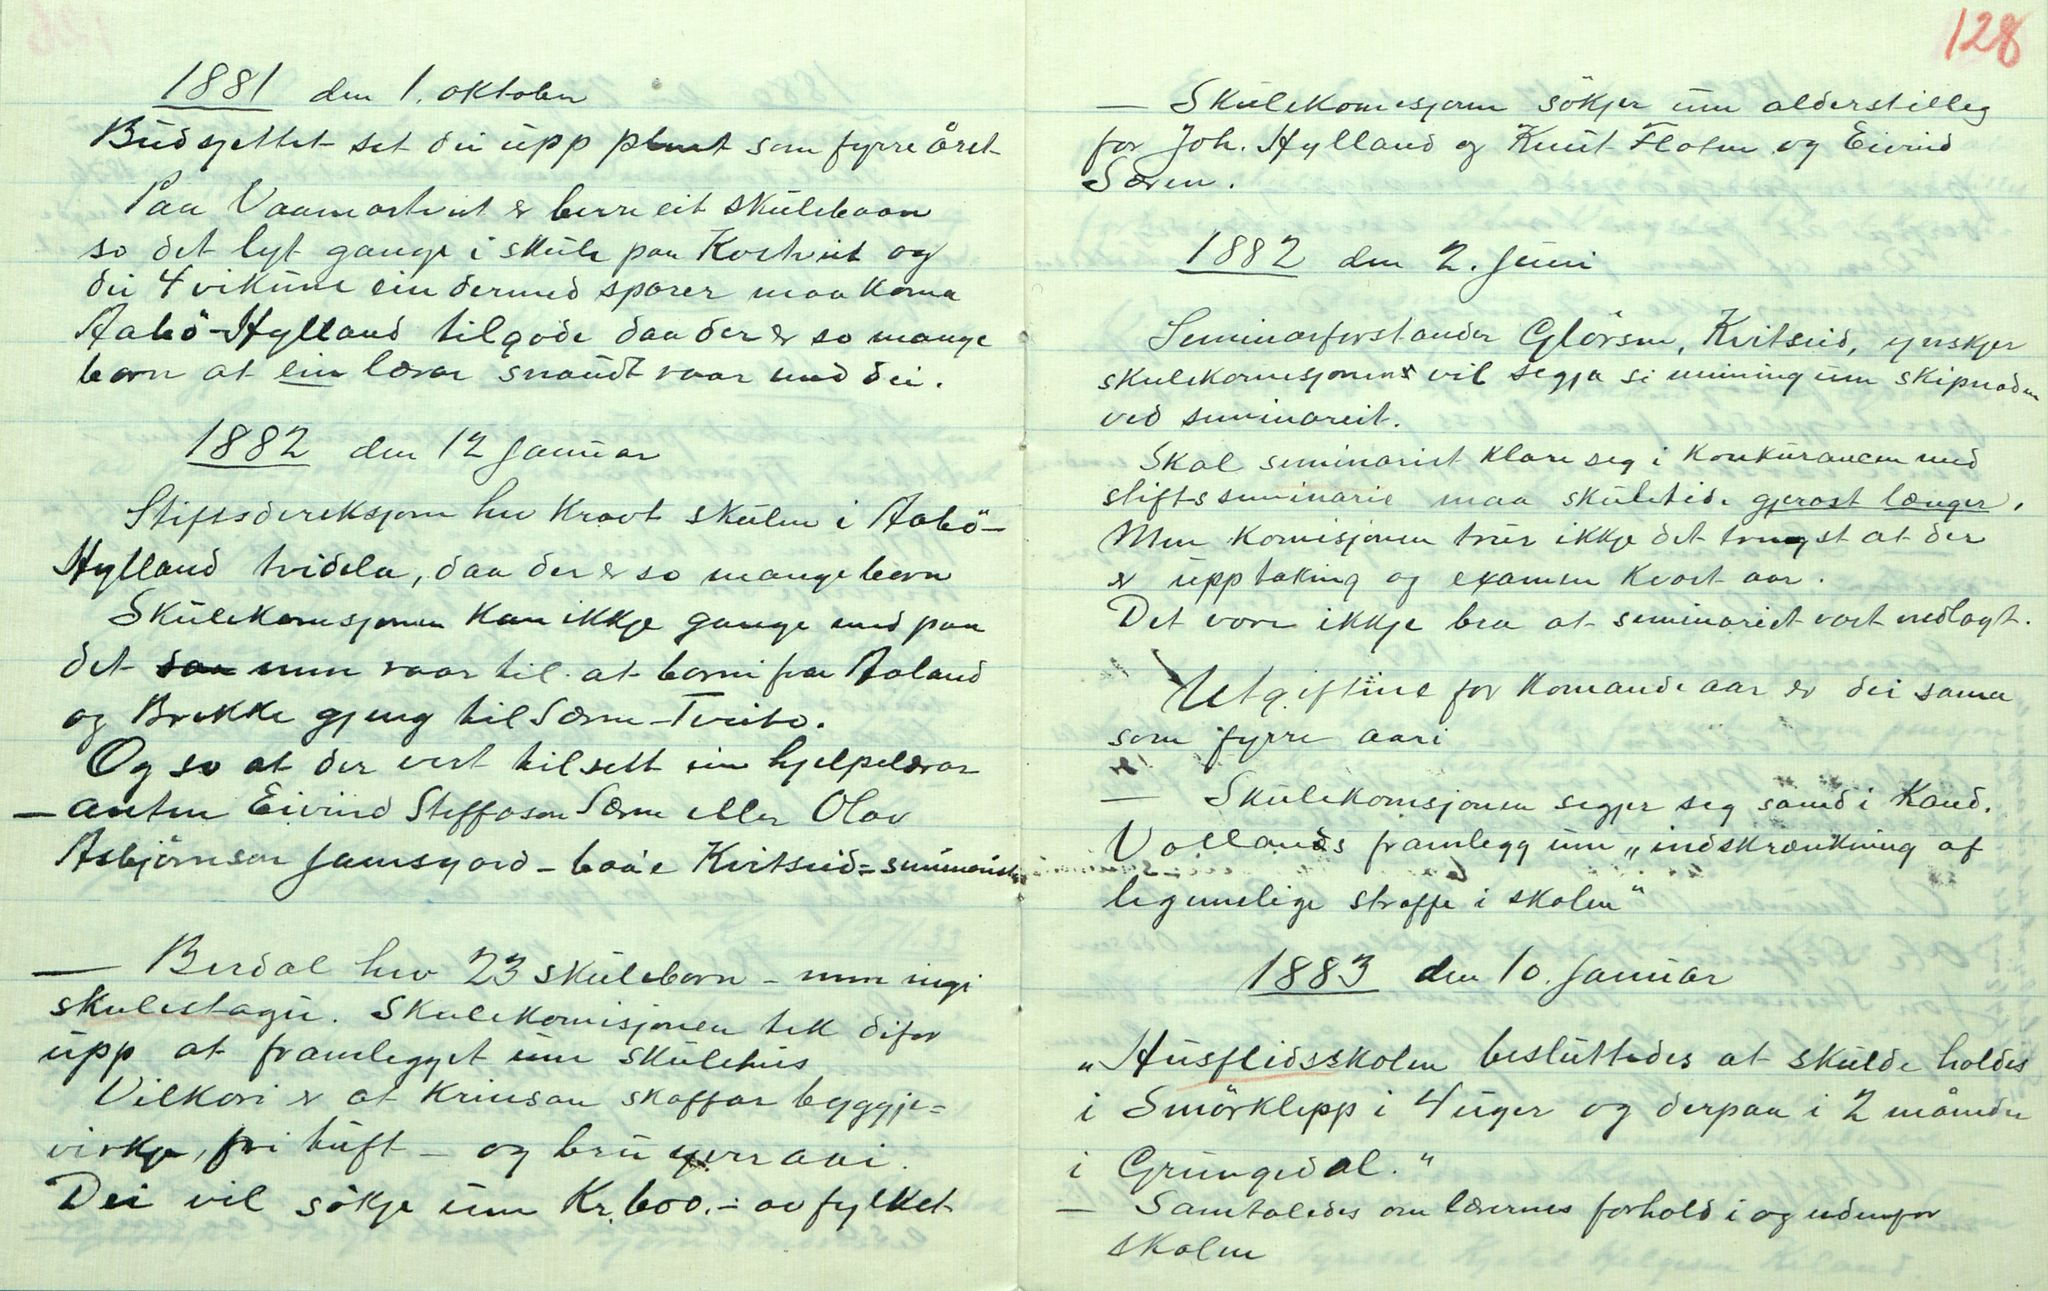 1881 den 1. oktober
Budsjettet set dei upp plent som fyrre året
Paa Vaamartveit er berre eit skulebaan
so det lyt gange i skule paa Kostveit og
dei 4 vikune ein dermed sparer maa koma
Aabö-Hylland tilgode daa der er so mange
born at ein lærar snaudt raar med dei.
1882 den 12 Januar
Stiftsdireksjonen hev kravt skulen i Aabö-
Hylland tvidela, daa der er so mange born
Skulekomisjonen kan ikkje gange med paa
det men raar til at borni fraa Aaland
og Brekke gjeng til Særen-Tveito.
Og so at der vert tilsett ein hjelpelærar
– anten Eivind Steffason Særen eller Olav
Asbjörnson Jamsgard – baae Kvitseid-seminaristar
— Berdal hev 23 skuleborn – men ingi
skulestogu. Skulekomisjonen tek difor
upp at framlegget um skulehus
Vilkori er at krinsen skaffar byggje-
virkje, fri tuft – og bru yver aai.
Dei vil sökje um Kr. 600.- av fylket
128
— Skulekomisjonen sökjer um alderstillegg
for Joh. Hylland og Knut Flaten og Eivind
Særen.
1882 den 2. Juni
Seminarforstander Glörsen, Kvitseid, ynskjer
skulekomisjonen vil segja si meining um skipnaden
ved seminareit.
Skal seminariet klare seg i konkurancen med
stiftsseminarie maa skuletide gjerast længer.
Men komisjonen trur ikkje det trengst at der
er upptaking og examen kvart aar.
Det vore ikkje bra at seminariet vart nedlagt.
Utgiftine for komande aar er dei same
som fyrre aari
— Skulekomisjonen segjer seg samd i Kand.
Vollands framlegg um „indskrænkning af
legemelige straffe i skolen"
1883 den 10. Januar
„Husflidsskolen besluttedes at skulde holdes
i Smörklepp i 4 uger og derpaa i 2 måneder
i Grungedal."
— Samtaledes om lærernes forhold i og udenfor
skolen